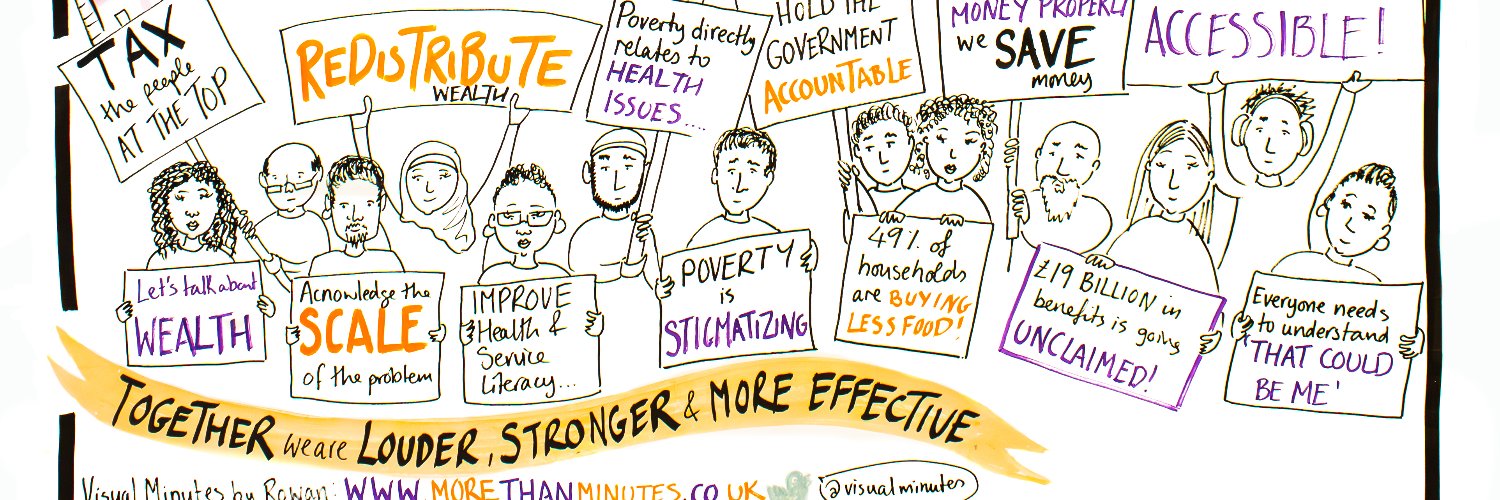 TAX
the people
AT THE TOP
REDISTRIBUTE
WEALTH
Poverty directly
relates to
HEALTH
ISSUES....
HOLD THE
GOVERNMENT
ACCOUNTABLE
MONEY PROPERLY
we SAVE
money
ACCESSIBLE!
Let's talk about
WEALTH
Acnowledge the
SCALE
of the problem
IMPROVE
Health &
Service
Literacy...
POVERTY
is
STIGMATIZING
49% of
households
are BUYING
LESS FOOD!
£19 BILLION in
benefits is going
UNCLAIMED!
Everyone needs
to understand
'THAT COULD
BE ME'
TOGETHER we are LOUDER, STRONGER & MORE EFFECTIVE
Visual Minutes by Rowan: WWW.MORETHANMINUTES.CO.UK @visualminutes